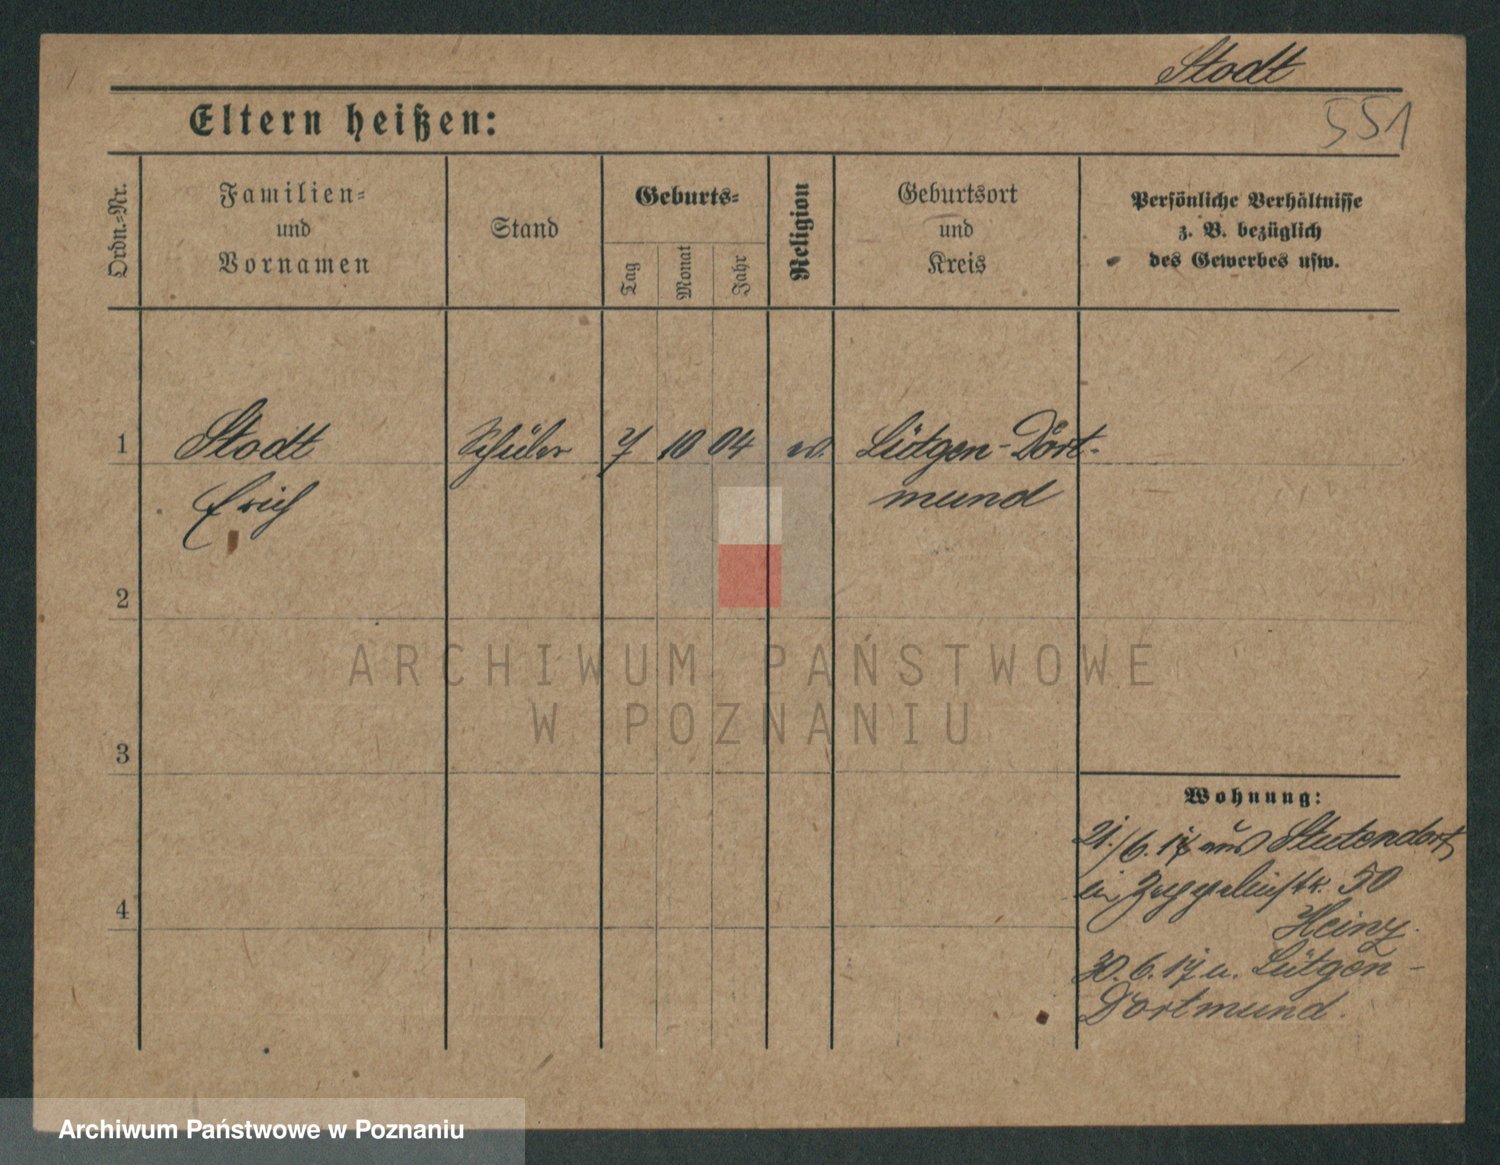 Stodt
551
Eltern heißen:
Ordn.-Nr.
Familien-
und
Vornamen
Stand
Geburts-
Tag
Monat
Jahr
Religion
Geburtsort
und
Kreis
Persönliche Verhältnisse
z. B. bezüglich
des Gewerbes usw.
1
Stodt
Schüler
7
10
04
ev.
Lütgen-Dort-
Erich
mund
2
ARCHIWUM PAŃSTWOWE
W POZNANIU
3
Wohnung:
21./6.17 aus
50
4
Heinz.
30.6.17 n. Lütgen-
Dortmund.
Archiwum Państwowe w Poznaniu